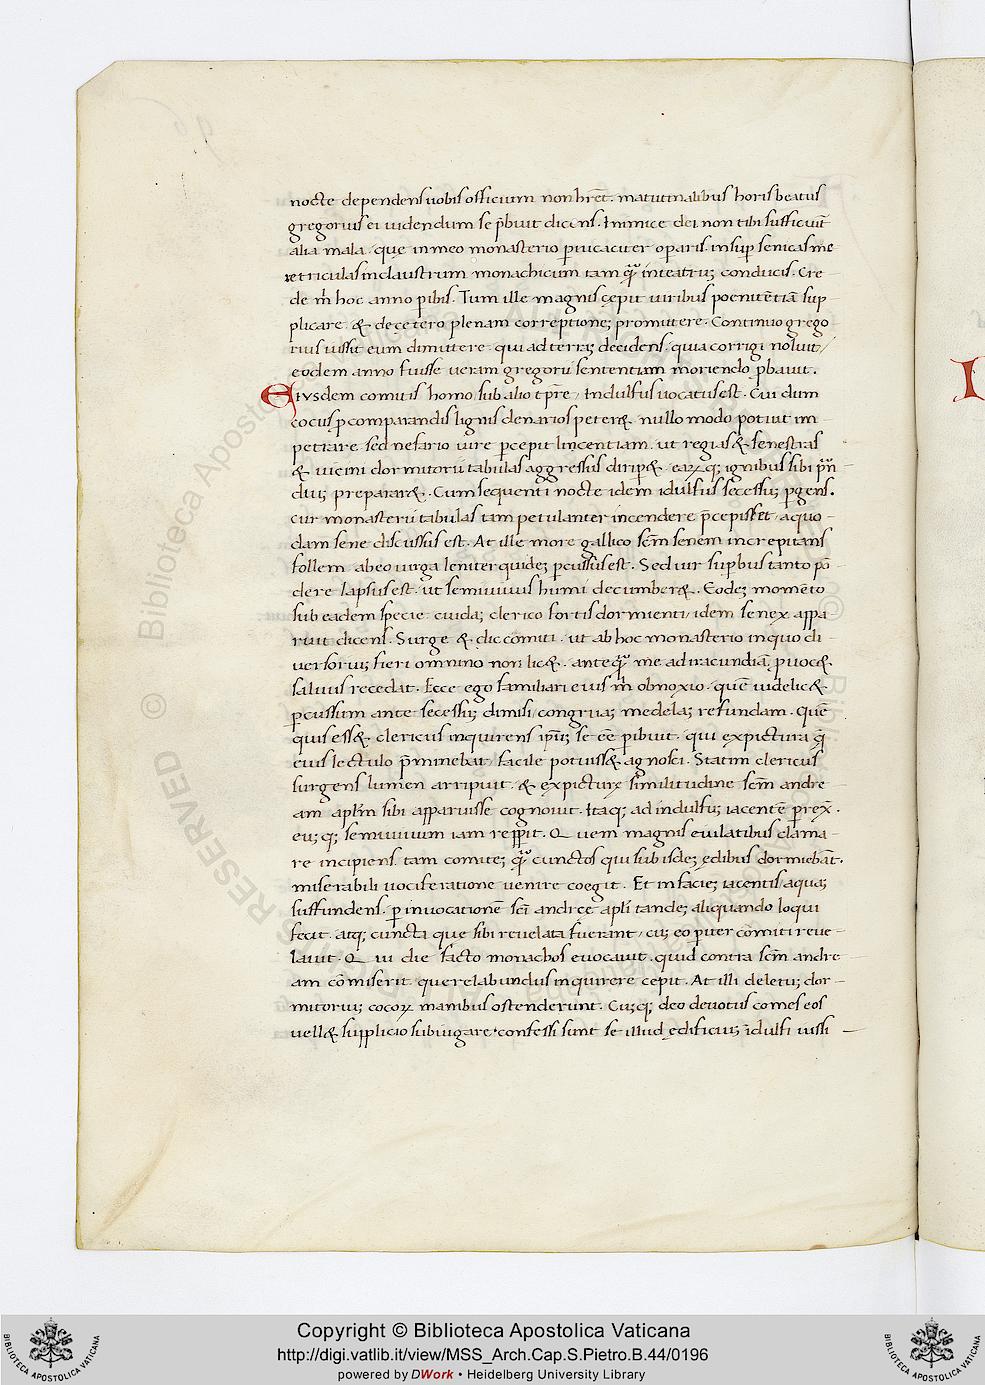 nocte dependens uobis officium non hret. matutinalibus horis beatus
gregorius ei uidendum se p̄buit dicens. Inimice dei non tibi sufficiūt
alia mala. quę in meo monasterio puicaciter operaris. insup senicas me
retriculas in claustrum monachicum tam quā in teatruꝫ conducis. Cre-
de m̄ hoc anno pibis. Tum ille magnis cępit uiribus poenitētiā sup-
plicare. & de cętero plenam correptioneꝫ promittere. Continuo grego
rius iussit eum dimittere. qui ad terraꝫ decidens. quia corrigi noluit/
eodem anno fuisse ueram gregorii sententiam moriendo pbauit.
Eiusdem comitis homo sub alio tp̄re/ Indulfus uocatus est. Cui dum
cocus ꝑ comparandis lignis denarios peter&. nullo modo potuit im-
petrare. sed nefario uire pcepit lincentiam. ut regias & fenestras
& uicini dormitorii tabulas aggressus dirip&. eaꝝqꝫ ignibus sibi prān
diuꝫ preparar&. Cum sequenti nocte idem idulfus secessuꝫ pgens.
cur monasterii tabulas tam petulanter incendere p̄cepisset/ a quo-
dam sene discussus est. At ille more gallico sc̄m senem increpitans
follem. ab eo uirga leniter quideꝫ pcussus est. Sed uir supbus tanto pō-
dere lapsus est. ut semiuiuus humi decumber&. Eodeꝫ momēto
sub eadem specie. cuidaꝫ clerico fortis dormienti/ idem senex appa
ruit dicens. Surge &. dic comiti. ut ab hoc monasterio in quo di-
uersoriuꝫ fieri omnino non lic&. antequā me ad iracundiā puoc&.
saluus recedat. Ecce ego familiari eius m̄ obnoxio. quē uidelic&.
pcussum ante secessuꝫ dimisi/ congruaꝫ medelaꝫ refundam. quē
quis ess&. clericus inquirens ip̄uꝫ se eē pibuit. qui ex pictura q̄
eius lectulo p̄minebat/ facile potuiss& agnosci. Statim clericus
surgens lumen arripuit. & ex picturę similitudine sc̄m andre-
am apl̄m sibi apparuisse cognouit. Itaqꝫ ad indulfuꝫ iacentē prex̄.
euꝫqꝫ semiuiuum iam reppit. Quem magnis eiulatibus clama-
re incipiens. tam comiteꝫ quā cunctos qui sub isdeꝫ ędibus dormiebāt.
miserabili uociferatione uenire coegit. Et in facieꝫ iacentis aquaꝫ
suffundens. p inuocationē sc̄i andreę apl̄i tandeꝫ aliquando loqui
fecit. atqꝫ cuncta que sibi reuelata fuerant/ cuꝫ eo piter comiti reue-
lauit. Qui die facto monachos euocauit. quid contra sc̄m andre-
am cōmiserit. querelabundus inquirere cepit. At illi deletuꝫ dor-
mitoriuꝫ cocoꝝ manibus ostenderunt. Cuꝫqꝫ deo deuotus comes eos
uell& supplicio subiugare. confessi sunt se illud ędificiuꝫ idulfi iussi
Copyright © Biblioteca Apostolica Vaticana
http://digi.vatlib.it/view/MSS_Arch.Cap.S.Pietro.B.44/0196
powered by DWork • Heidelberg University Library